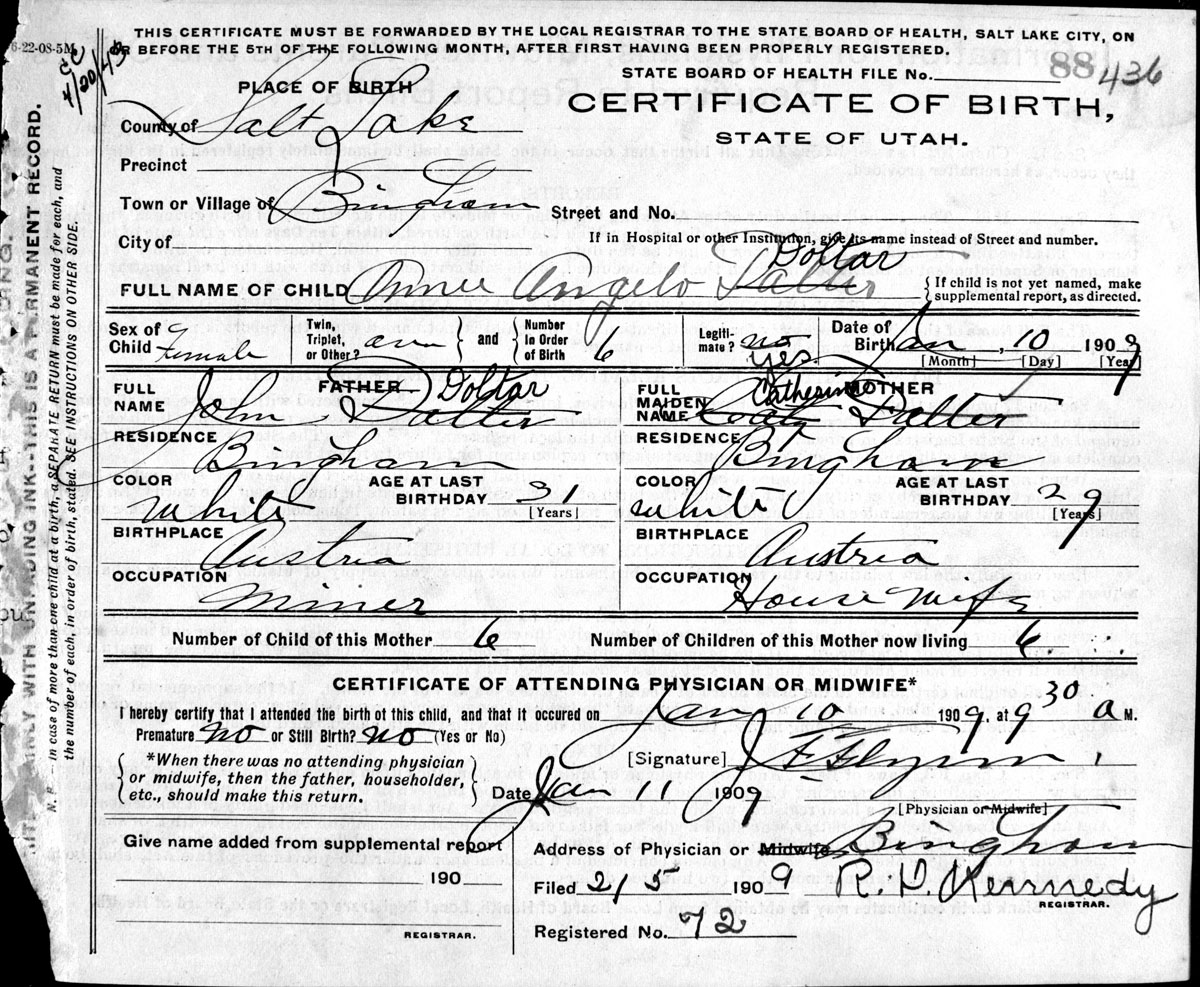 THIS CERTIFICATE MUST BE FORWARDED BY THE LOCAL REGISTRAR TO THE STATE BOARD OF HEALTH, SALT LAKE CITY, ON
6-22-08-5M OR BEFORE THE 5TH OF THE FOLLOWING MONTH, AFTER FIRST HAVING BEEN PROPERLY REGISTERED.
4/20/43
STATE BOARD OF HEALTH FILE No. 88 436
PLACE OF BIRTH
CERTIFICATE OF BIRTH,
STATE OF UTAH.
County of Salt Lake
Precinct
Town or Village of Bingham Street and No.
City of
If in Hospital or other Institution, give its name instead of Street and number.
Doltar
FULL NAME OF CHILD Annee Angelo Dalter
If child is not yet named, make
supplemental report, as directed.
Sex of Child Female
Twin, Triplet, or Other?
and
Number In Order of Birth 6
Legitimate? no yes.
Date of Birth Jan, 10 1909
[Month] [Day] [Year]
FATHER
FULL NAME John Dalter Doltar
RESIDENCE
Bingham
COLOR White
AGE AT LAST BIRTHDAY 31
[Years]
BIRTHPLACE
Austria
OCCUPATION
Miner
MOTHER
FULL MAIDEN NAME Catherine Dalter
RESIDENCE
Bingham
COLOR White
AGE AT LAST BIRTHDAY 29
[Years]
BIRTHPLACE
Austria
OCCUPATION
House Wife
Number of Child of this Mother 6 Number of Children of this Mother now living 6
CERTIFICATE OF ATTENDING PHYSICIAN OR MIDWIFE*
I hereby certify that I attended the birth of this child, and that it occured on Jan 10 1909, at 9 30 a M.
Premature no or Still Birth? no (Yes or No)
*When there was no attending physician
or midwife, then the father, householder,
etc., should make this return.
[Signature] J F Flynn
Date Jan 11 1909
[Physician or Midwife]
Give name added from supplemental report
190
REGISTRAR.
Address of Physician or Midwife Bingham
Filed 2/5 1909 R. D. Kennedy
REGISTRAR.
Registered No. 72
WITH UNFADING INK--THIS IS A PERMANENT RECORD.
N. B.—In case of more than one child at a birth, a SEPARATE RETURN must be made for each, and
the number of each, in order of birth, stated. SEE INSTRUCTIONS ON OTHER SIDE.